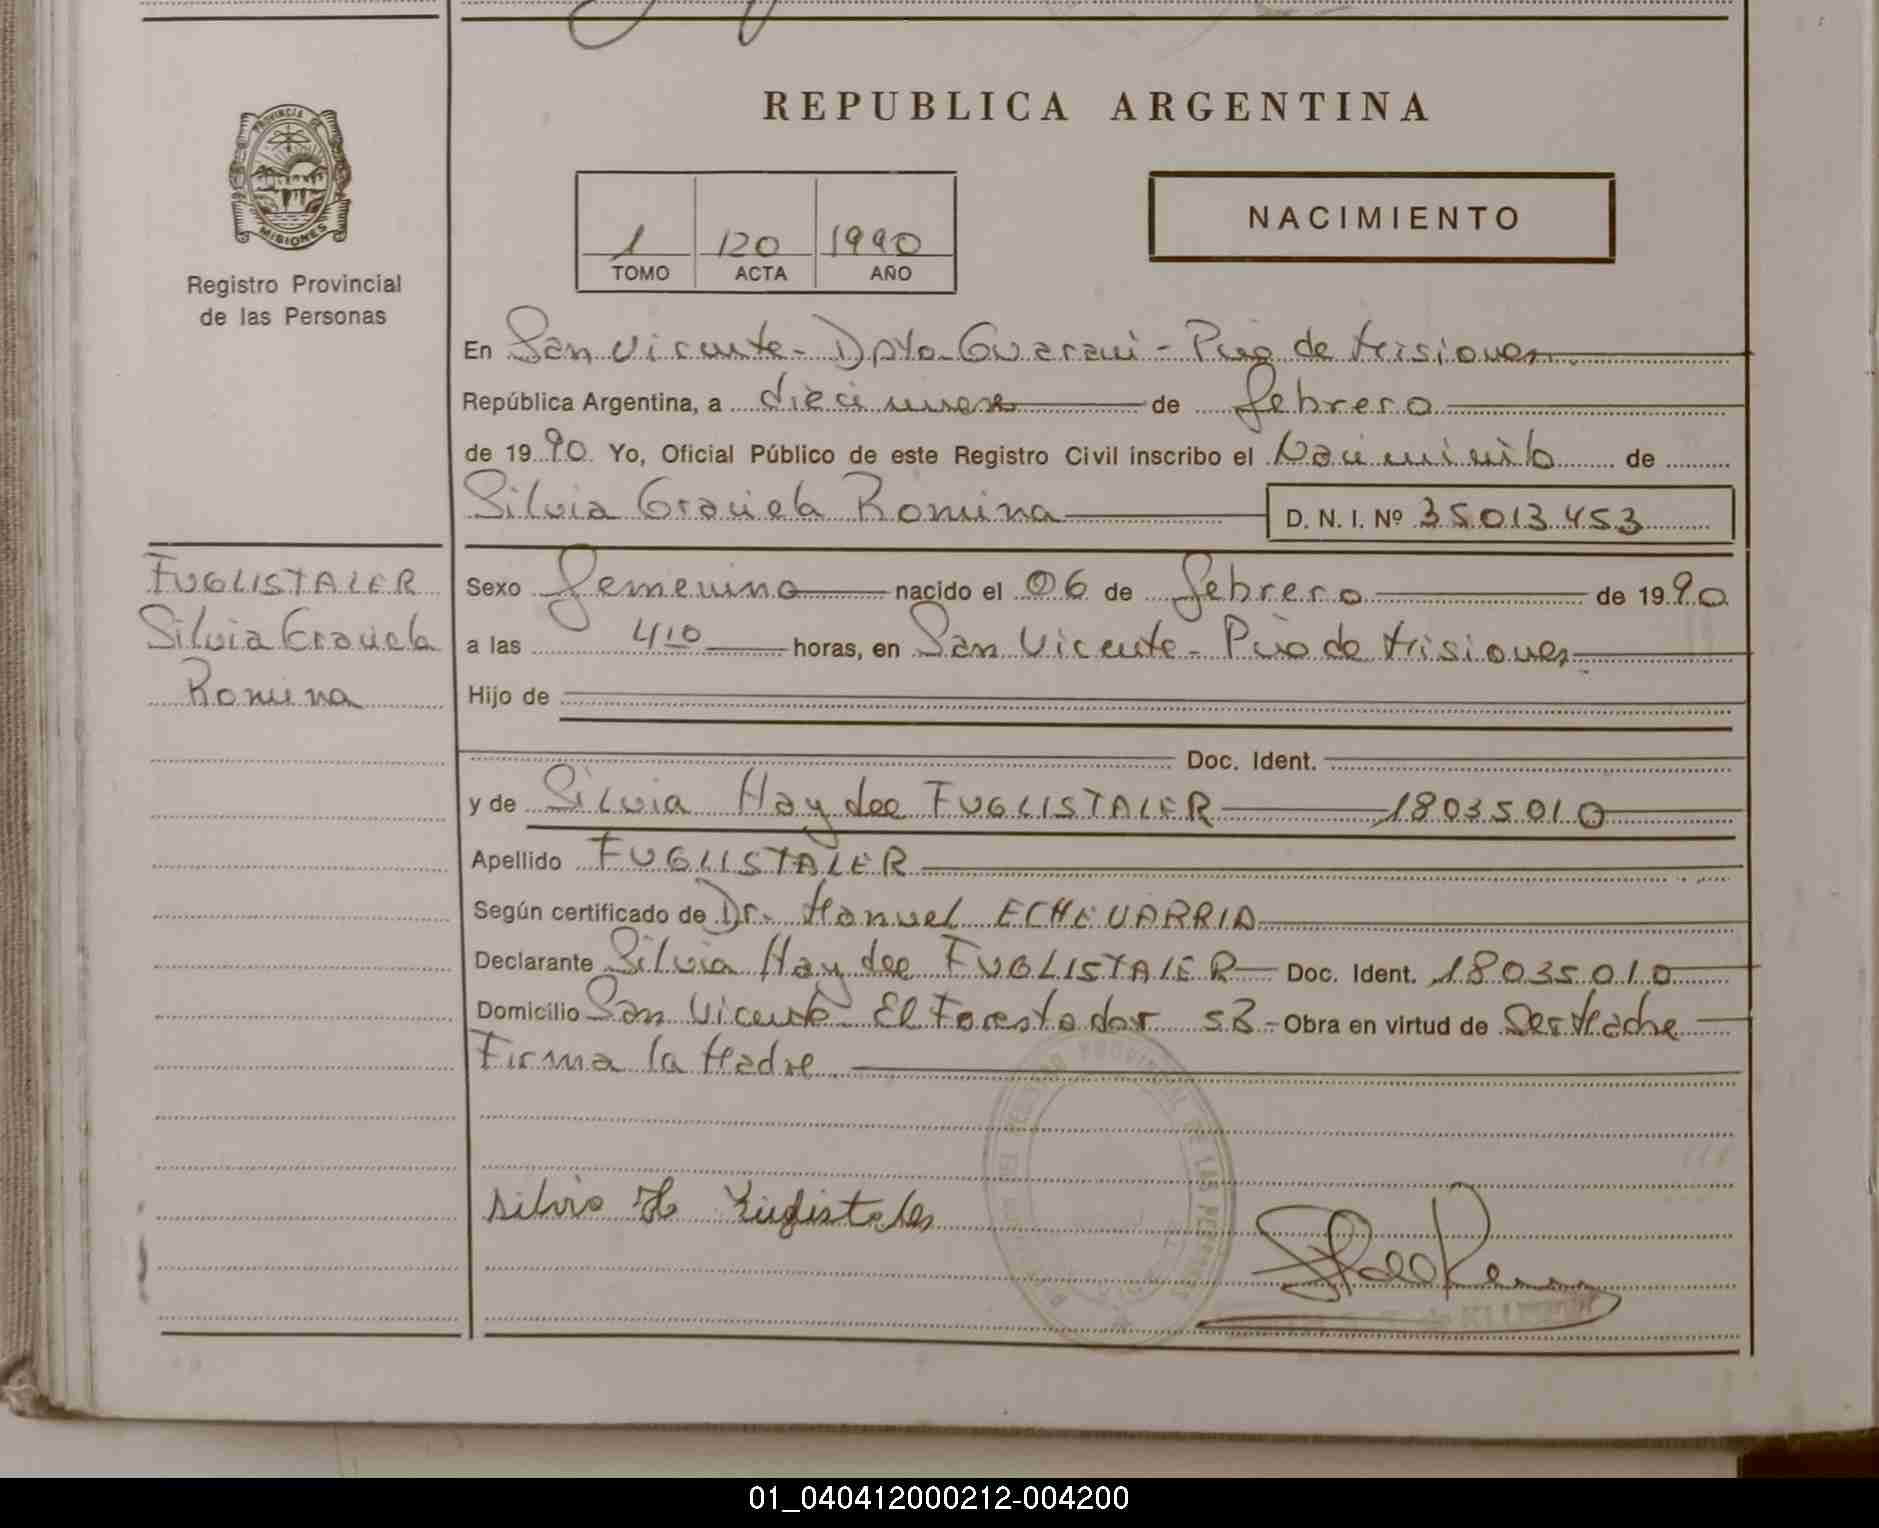 REPUBLICA ARGENTINA
PROVINCIA DE
MISIONES
Registro Provincial
de las Personas
1 120 1990
TOMO ACTA AÑO
NACIMIENTO
En San Vicente - Dpto Guaraní - Pcia de Misiones
República Argentina, a diecinueve de febrero
de 1990 Yo, Oficial Público de este Registro Civil inscribo el Nacimiento de
Silvia Graciela Romina D. N. I. Nº 35013453
FUGLISTALER
Silvia Graciela
Romina
Sexo femenino nacido el 06 de febrero de 1990
a las 4 10 horas, en San Vicente - Pcia de Misiones
Hijo de
Doc. Ident.
y de Silvia Haydee FUGLISTALER 18035010
Apellido FUGLISTALER
Según certificado de Dr. Manuel ECHEVARRIA
Declarante Silvia Haydee FUGLISTALER Doc. Ident. 18035010
Domicilio San Vicente El Forestador 53 - Obra en virtud de Ser Madre
Firma la Madre
REGISTRO PROVINCIAL DE LAS PERSONAS
Silvia H Fuglistaler
01_040412000212-004200